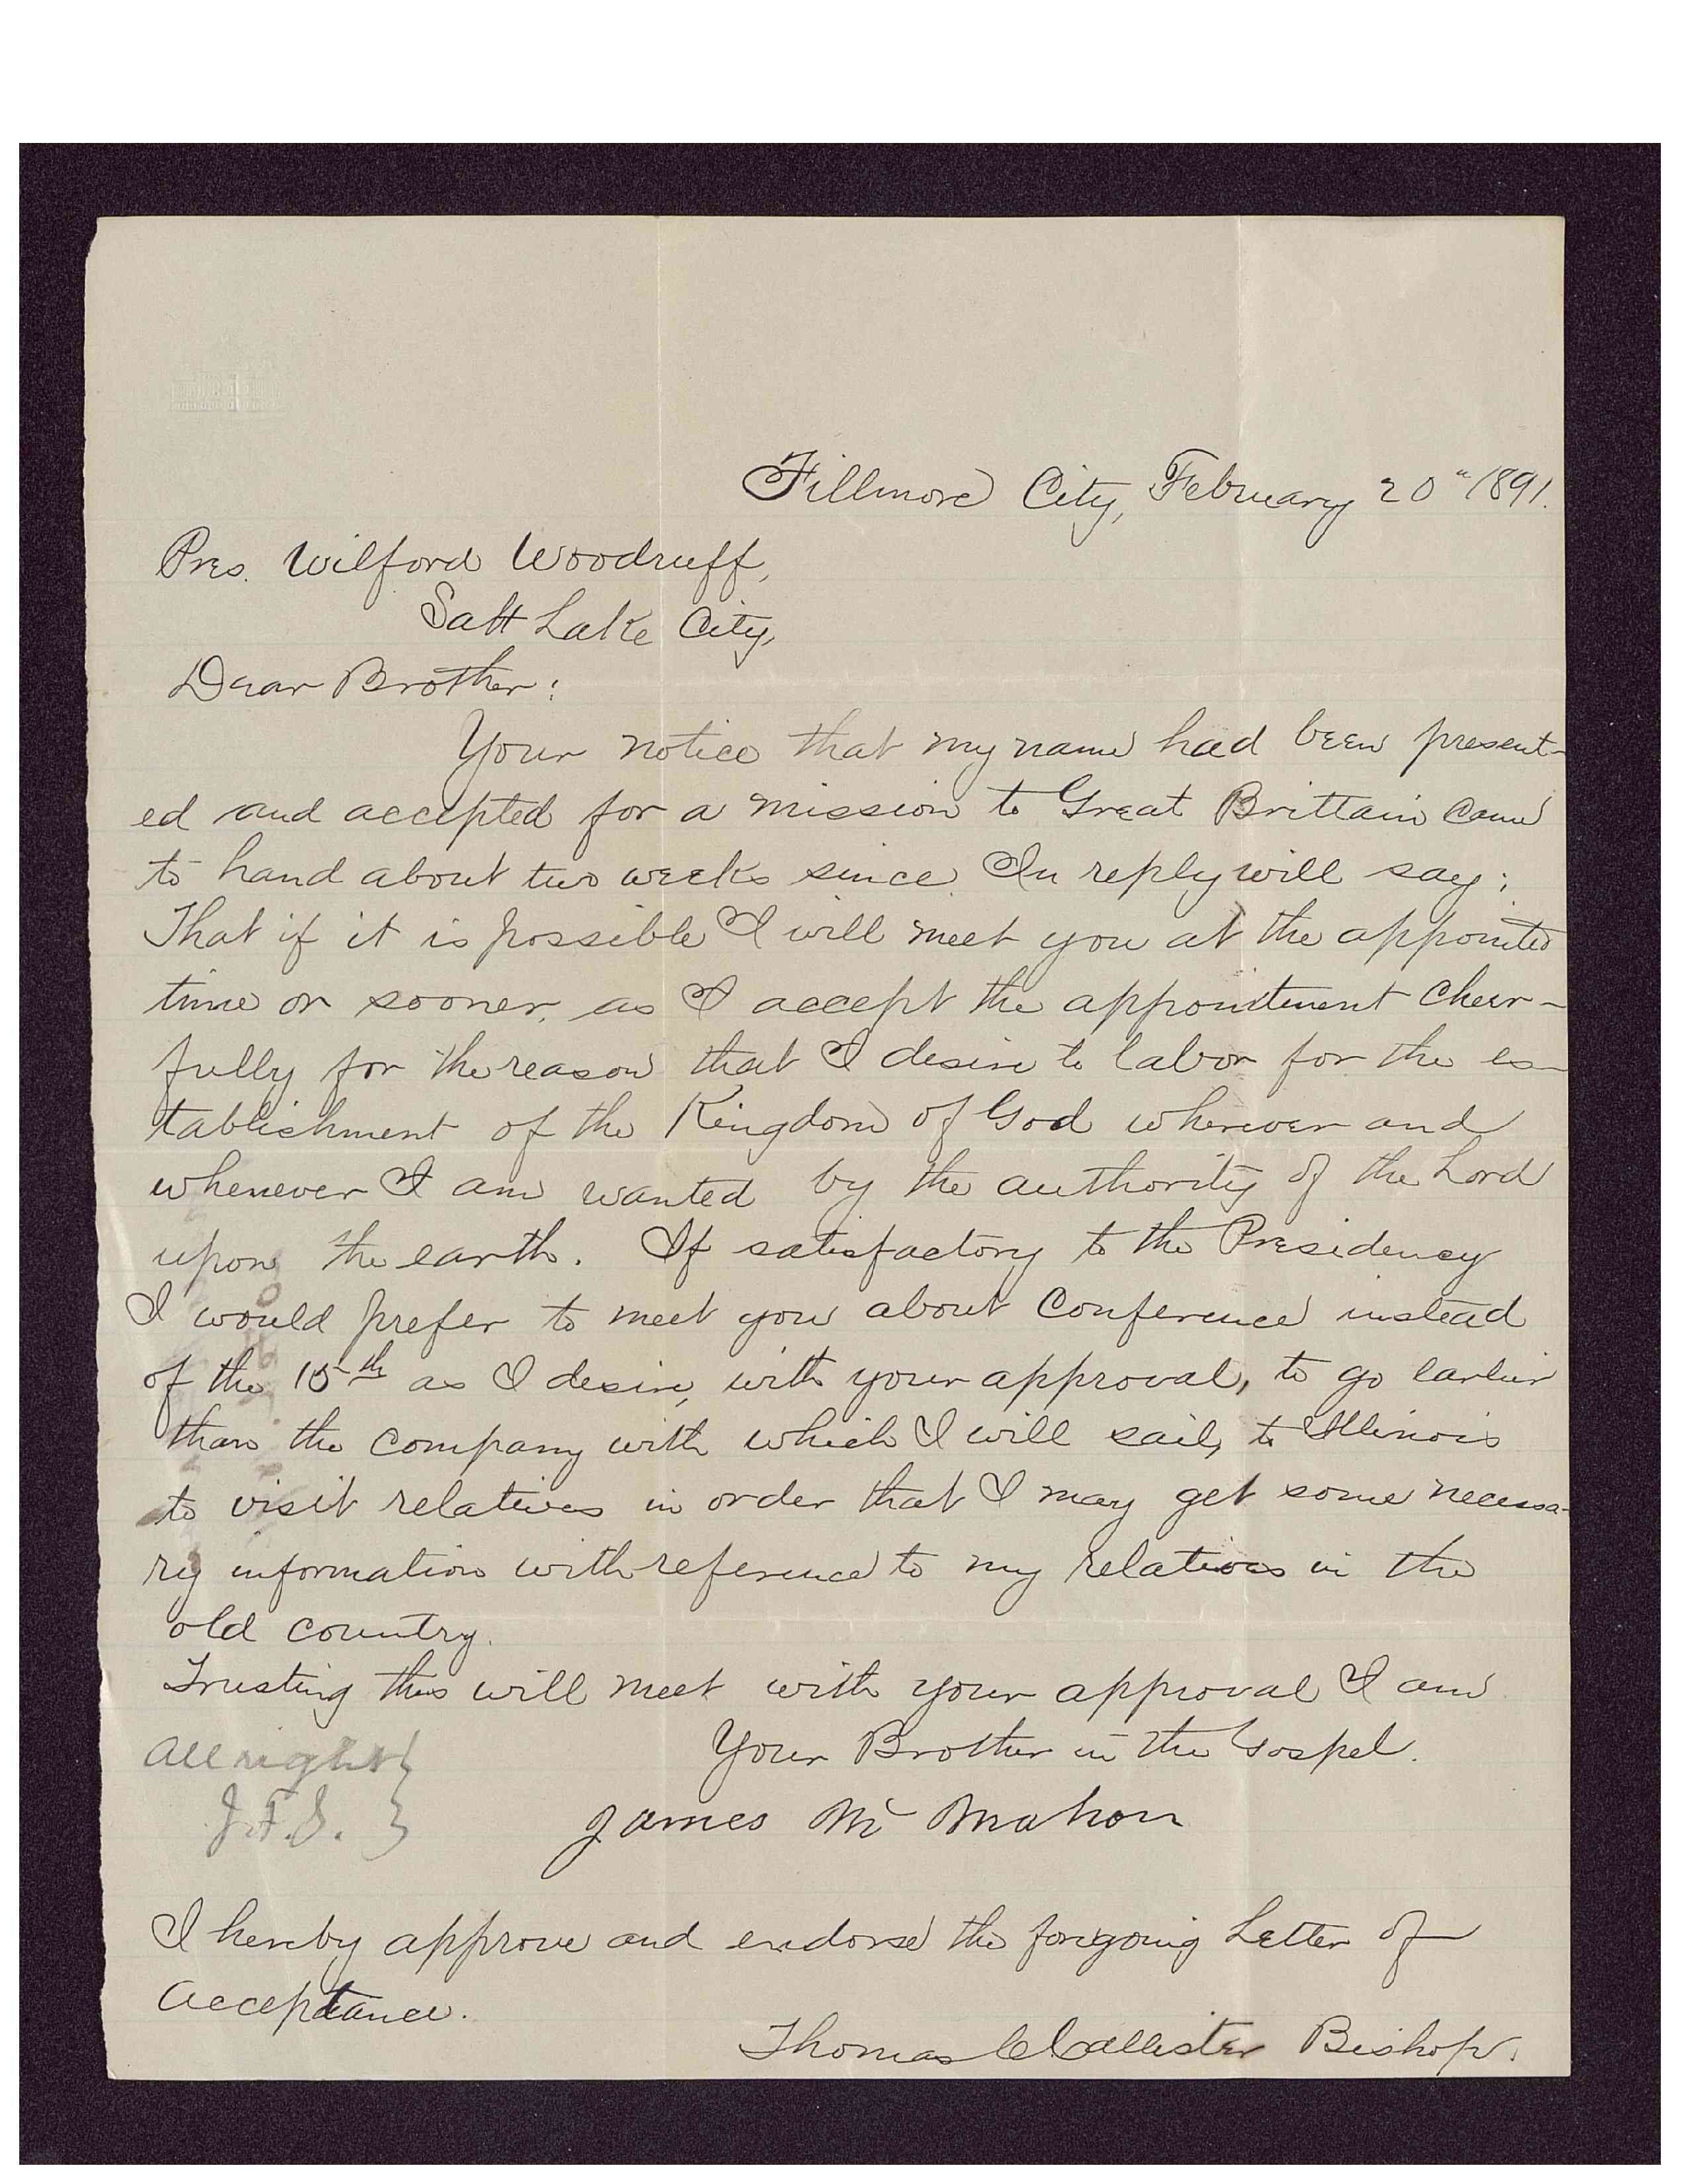 Fillmore City, February 20" 1891.
Pres. Wilford Woodruff,
Salt Lake City,
Dear Brother:
Your notice that my name had been present-
ed and accepted for a mission to Great Brittain came
to hand about two weeks since. In reply will say:
That if it is possible I will meet you at the appointed
time or sooner, as I accept the appointment cheer-
fully for the reason that I desire to labor for the es-
tablishment of the Kingdom of God wherever and
whenever I am wanted by the authority of the Lord
upon the earth. If satisfactory to the Presidency
I would prefer to meet you about Conference instead
of the 15th as I desire, with your approval, to go earlier
than the company with which I will sail, to Illinois
to visit relatives in order that I may get some necessa-
ry information with reference to my relatives in the
old country.
Trusting this will meet with your approval I am
Your Brother in the Gospel.
James Mc Mahon
All right }
J.F.S. }
I hereby approve and endorse the foregoing Letter of
Acceptance.
Thomas C Callister Bishop.